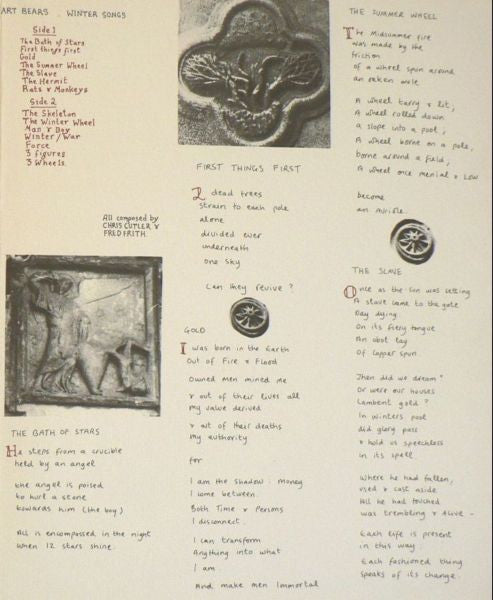 ART BEARS . WINTER SONGS
Side 1
The Bath of Stars
First things first
Gold
The Summer Wheel
The Slave
The Hermit
Rats & Monkeys
Side 2
The Skeleton
The Winter Wheel
Man & Boy
Winter/War
Force
3 figures
3 Wheels.
All composed by
CHRIS CUTLER &
FRED FRITH.
THE BATH OF STARS
He steps from a crucible
held by an angel
the angel is poised
to hurl a stone
towards him (the boy)
All is encompassed in the night
When 12 stars shine.
FIRST THINGS FIRST
2 dead trees
strain to each pole
alone
divided ever
underneath
one sky
Can they revive?
GOLD
I was born in the Earth
Out of Fire & Flood
Owned men mined me
& out of their lives all
my value derived
& out of their deaths
my authority
for
I am the shadow: money
I come between.
Both Time & Persons
I disconnect.
I can transform
Anything into what
I am.
And make men Immortal
THE SUMMER WHEEL
The Midsummer fire
was made by the
friction
of a wheel spun around
an oaken axle
A wheel tarry & lit;
A wheel rolled down
a slope into a pool;
A wheel borne on a pole,
borne around a field;
A wheel once menial & Low
become
an Aureole.
THE SLAVE
Once as the sun was setting
A slave came to the gate
Day dying
On its fiery tongue
An obol lay
Of copper spun
Then did we dream?
Or were our houses
Lambent gold?
In winters pool
did glory pass
& hold us speechless
in its spell.
Where he had fallen,
used & cast aside
All he had touched
was trembling & Alive -
Each life is present
in this way
Each fashioned thing
speaks of its change.